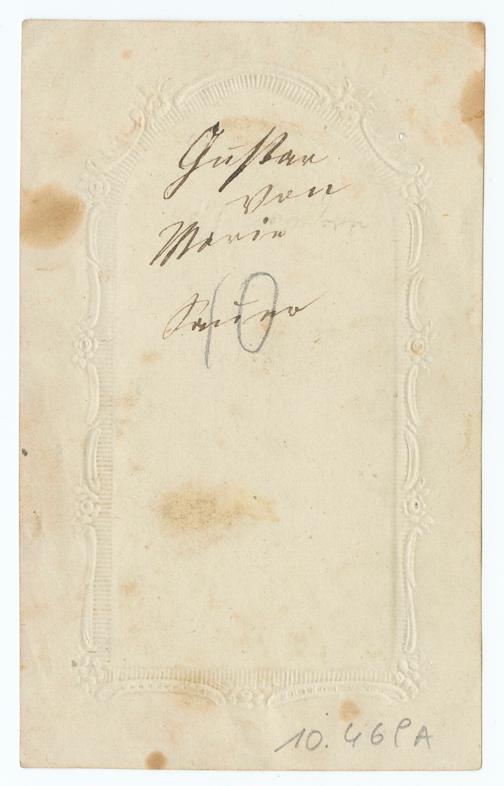 Gustav
von
Marie
10
10.469A